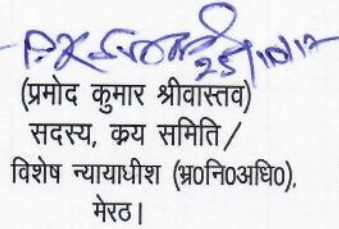 25/10/17
(प्रमोद कुमार श्रीवास्तव)
सदस्य, क्रय समिति /
विशेष न्यायाधीश (भ्र०नि०अधि०),
मेरठ।